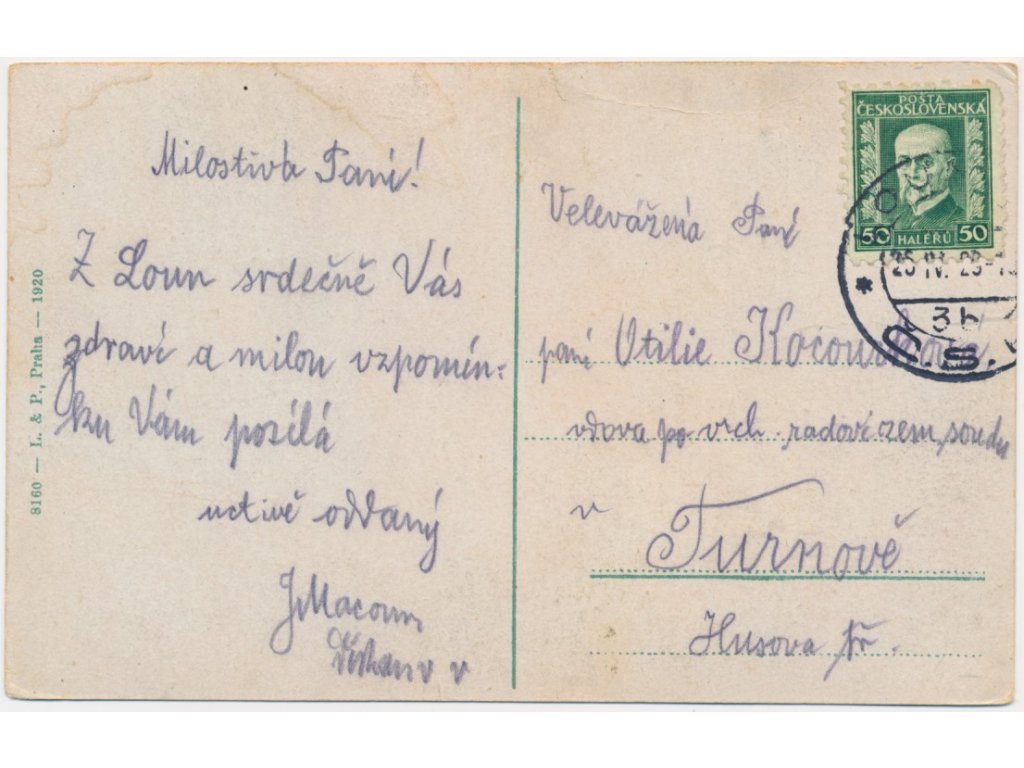 8160 — L. & P., Praha — 1920
Milostivá Paní!
Z Loun srdečně Vás
zdraví a milou vzpomín-
ku Vám posílá
uctivě oddaný
JMacoun
POŠTA
ČESKOSLOVENSKÁ
50 HALÉŘŮ 50
25 IV. 28-1
3b
Velevážená Paní
paní Otilie Kocourková
vdova po vrch. radovi zem. soudu
v
Turnově
Husova tř.